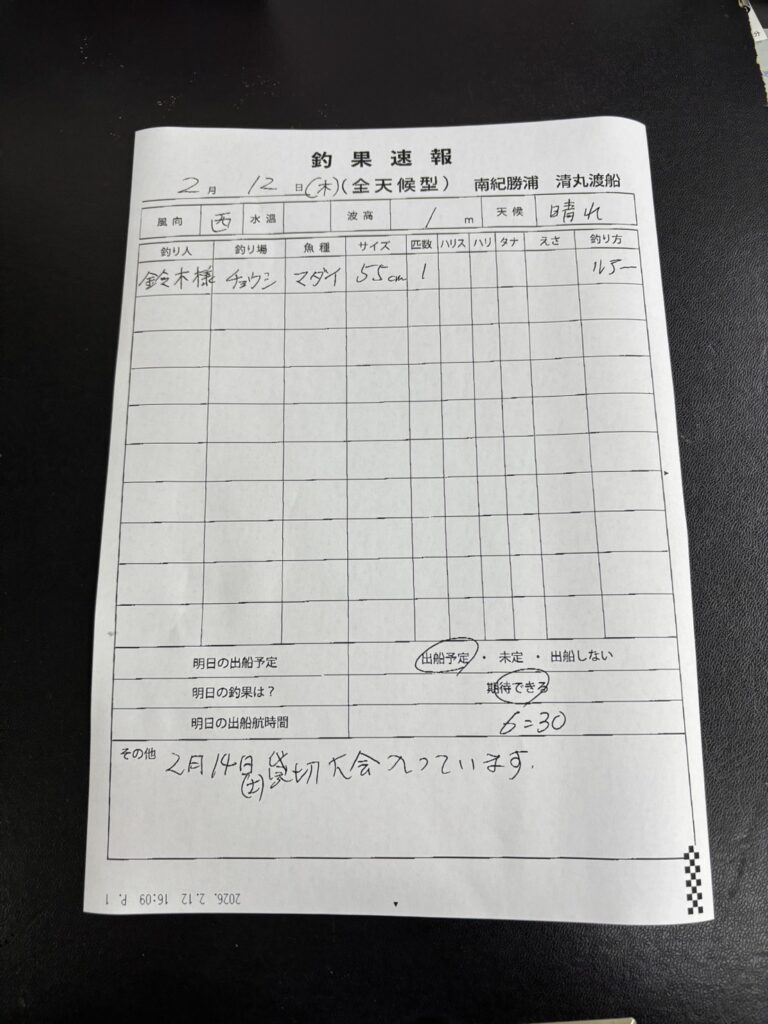 釣果速報
2月 12日(木)(全天候型) 南紀勝浦 清丸渡船
風向 西 水温 波高 1 m 天候 晴れ
釣り人 釣り場 魚種 サイズ 匹数 ハリス ハリ タナ えさ 釣り方
鈴木様 チョウシ マダイ 55cm 1 ルアー
明日の出船予定 出船予定・未定・出船しない
明日の釣果は? 期待できる
明日の出船航時間 6=30
その他 2月14日(土)貸切大会入っています.
2026. 2.12 16:09 P. 1